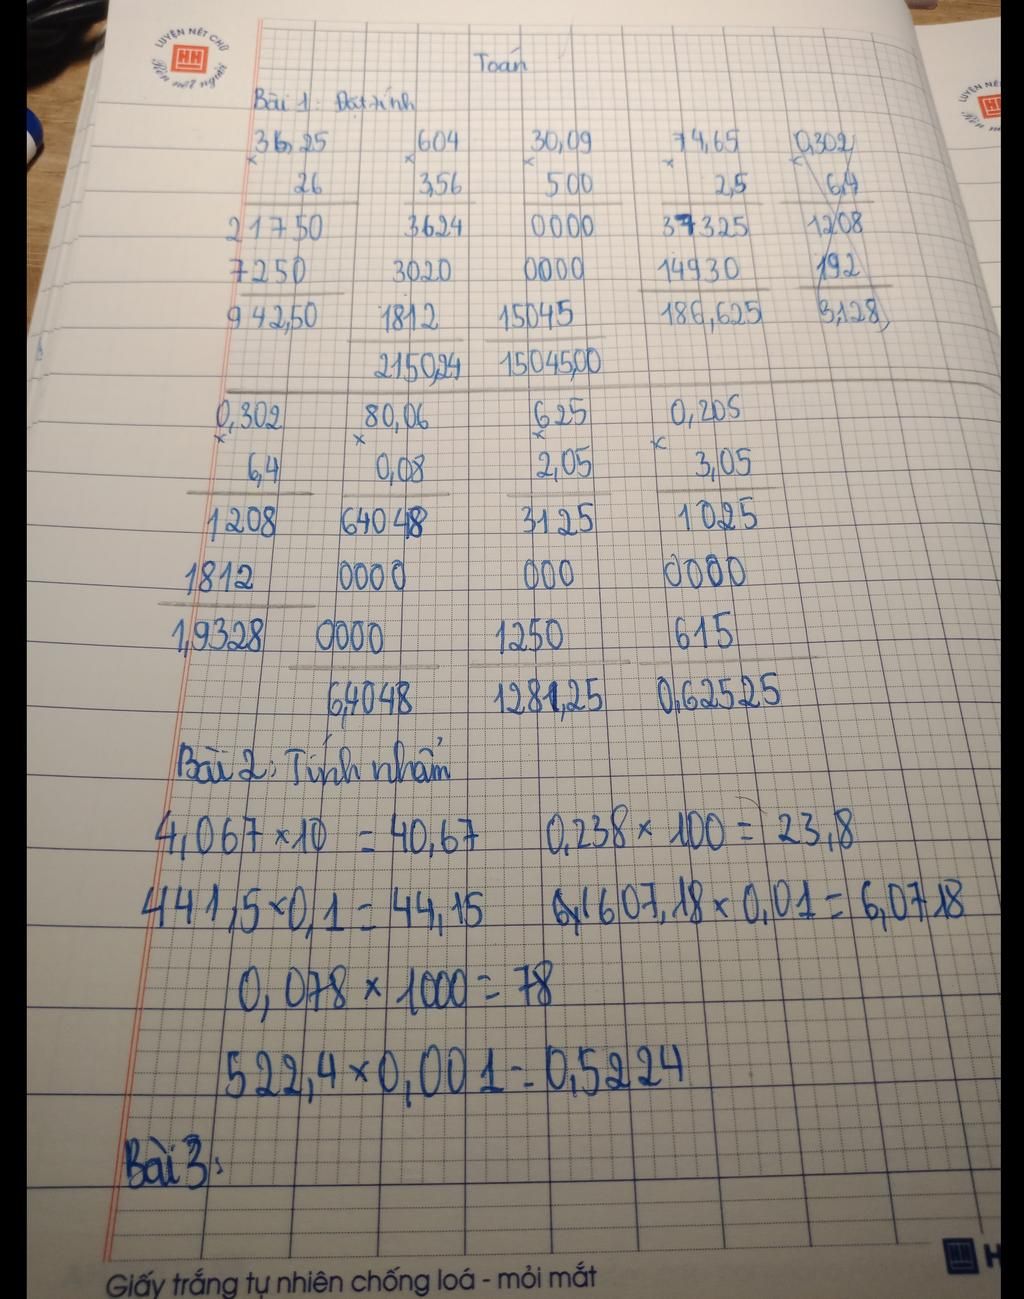 LUYỆN NÉT CHỮ
HN
Rèn nết người
Toán
Bài 1: Đặt tính
36,25 604 30,09 74,65 0,302
× × × × ×
26 3,56 500 2,5 6,4
21750 3624 0000 37325 1208
7250 3020 0000 14930 192
942,50 1812 15045 186,625 3,128
2150,24 15045,00
0,302 80,06 625 0,205
× × × ×
6,4 0,08 2,05 3,05
1208 64048 3125 1025
1812 0000 000 0000
1,9328 0000 1250 615
6,4048 1281,25 0,62525
Bài 2: Tính nhẩm
4,067 × 10 = 40,67 0,238 × 100 = 23,8
441,5 × 0,1 = 44,15 607,18 × 0,01 = 6,0718
0,078 × 1000 = 78
522,4 × 0,001 = 0,5224
Bài 3:
HN H
Giấy trắng tự nhiên chống loá - mỏi mắt